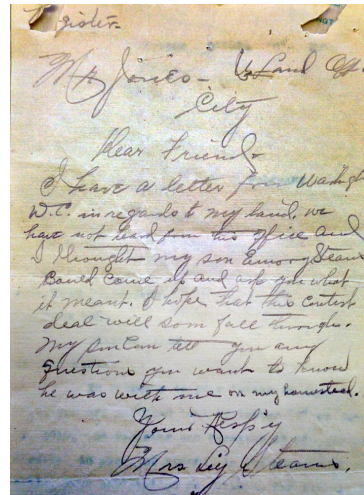 Register-
Mr Jones- U.S. Land Off
City
Dear Friend-
I have a letter from Washingt
W.C. in regards to my land, we
have not heard from this office and
I thought my son Emory Stearns
Could come up and ask you what
it meant. I hope that this contest
deal will soon fall through.
My son can tell you any
question you want to know
he was with me on my homestead.
Your Resp'y
Mrs Stearns.